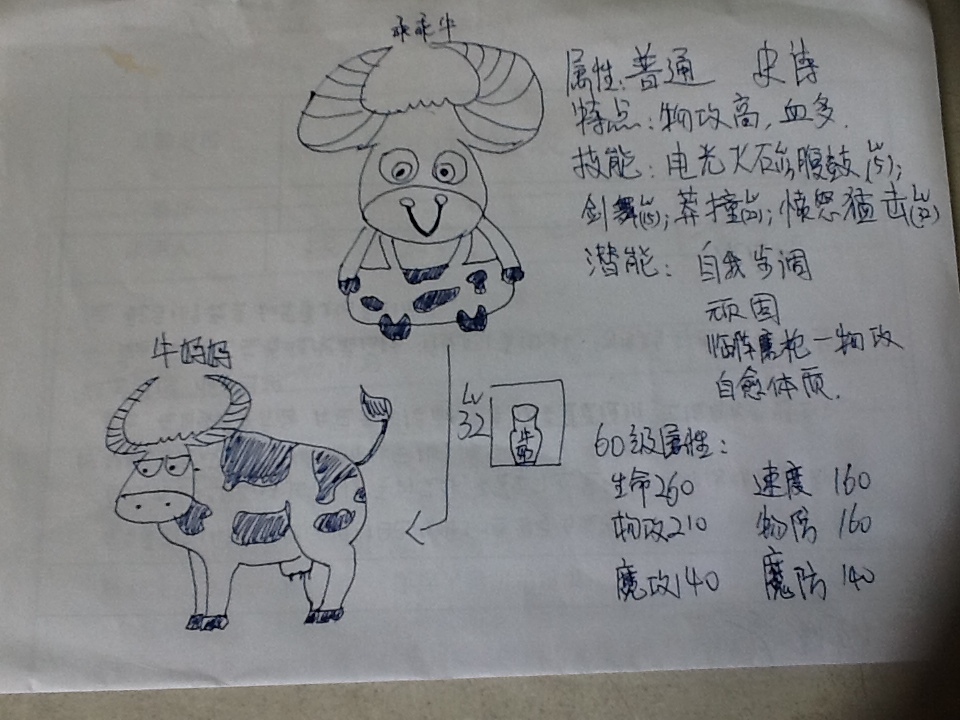 乖乖牛
属性:普通 史诗
特点:物攻高,血多.
技能:电光火石,腹鼓(Lv5);
剑舞(Lv15);莽撞(Lv21);愤怒猛击(Lv32)
潜能:自我步调
顽固
临阵磨枪—物攻
自愈体质.
牛妈妈
Lv
32
牛奶
60级属性:
生命260 速度 160
物攻210 物防 160
魔攻140 魔防 140